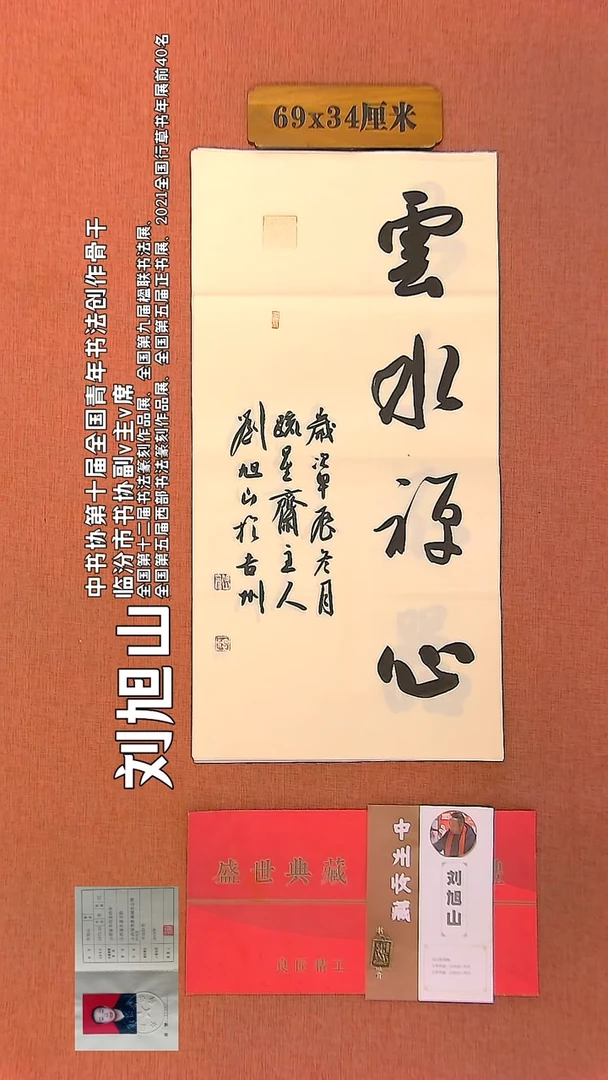 69x34厘米
雲水禅心
歲次甲辰冬月
疏星齋主人
劉旭山於古州
中书协第十届全国青年书法创作骨干
临汾市书协副v主v席
全国第十二届书法篆刻作品展、全国第九届楹联书法展、
全国第五届西部书法篆刻作品展、全国第五届正书展、2021全国行草书年展前40名
刘旭山
盛世典藏
中州收藏
刘旭山